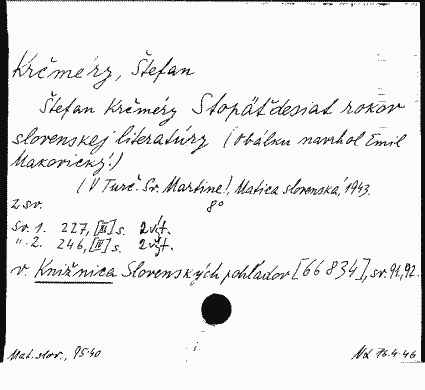 Krčméry, Štefan
Štefan Krčméry Stopäťdesiat rokov
slovenskej literatúry (Obálku navrhol Emil
Makovický.)
(V Turč. Sv. Martine), Matica slovenská, 1943.
2 sv. 8°
sv. 1. 227, [III] s. 2 vyt.
" 2. 246, [II] s. 2 vyt.
v. Knižnica Slovenských pohľadov [66834], sv. 91, 92.
Mat. slov., 95·40